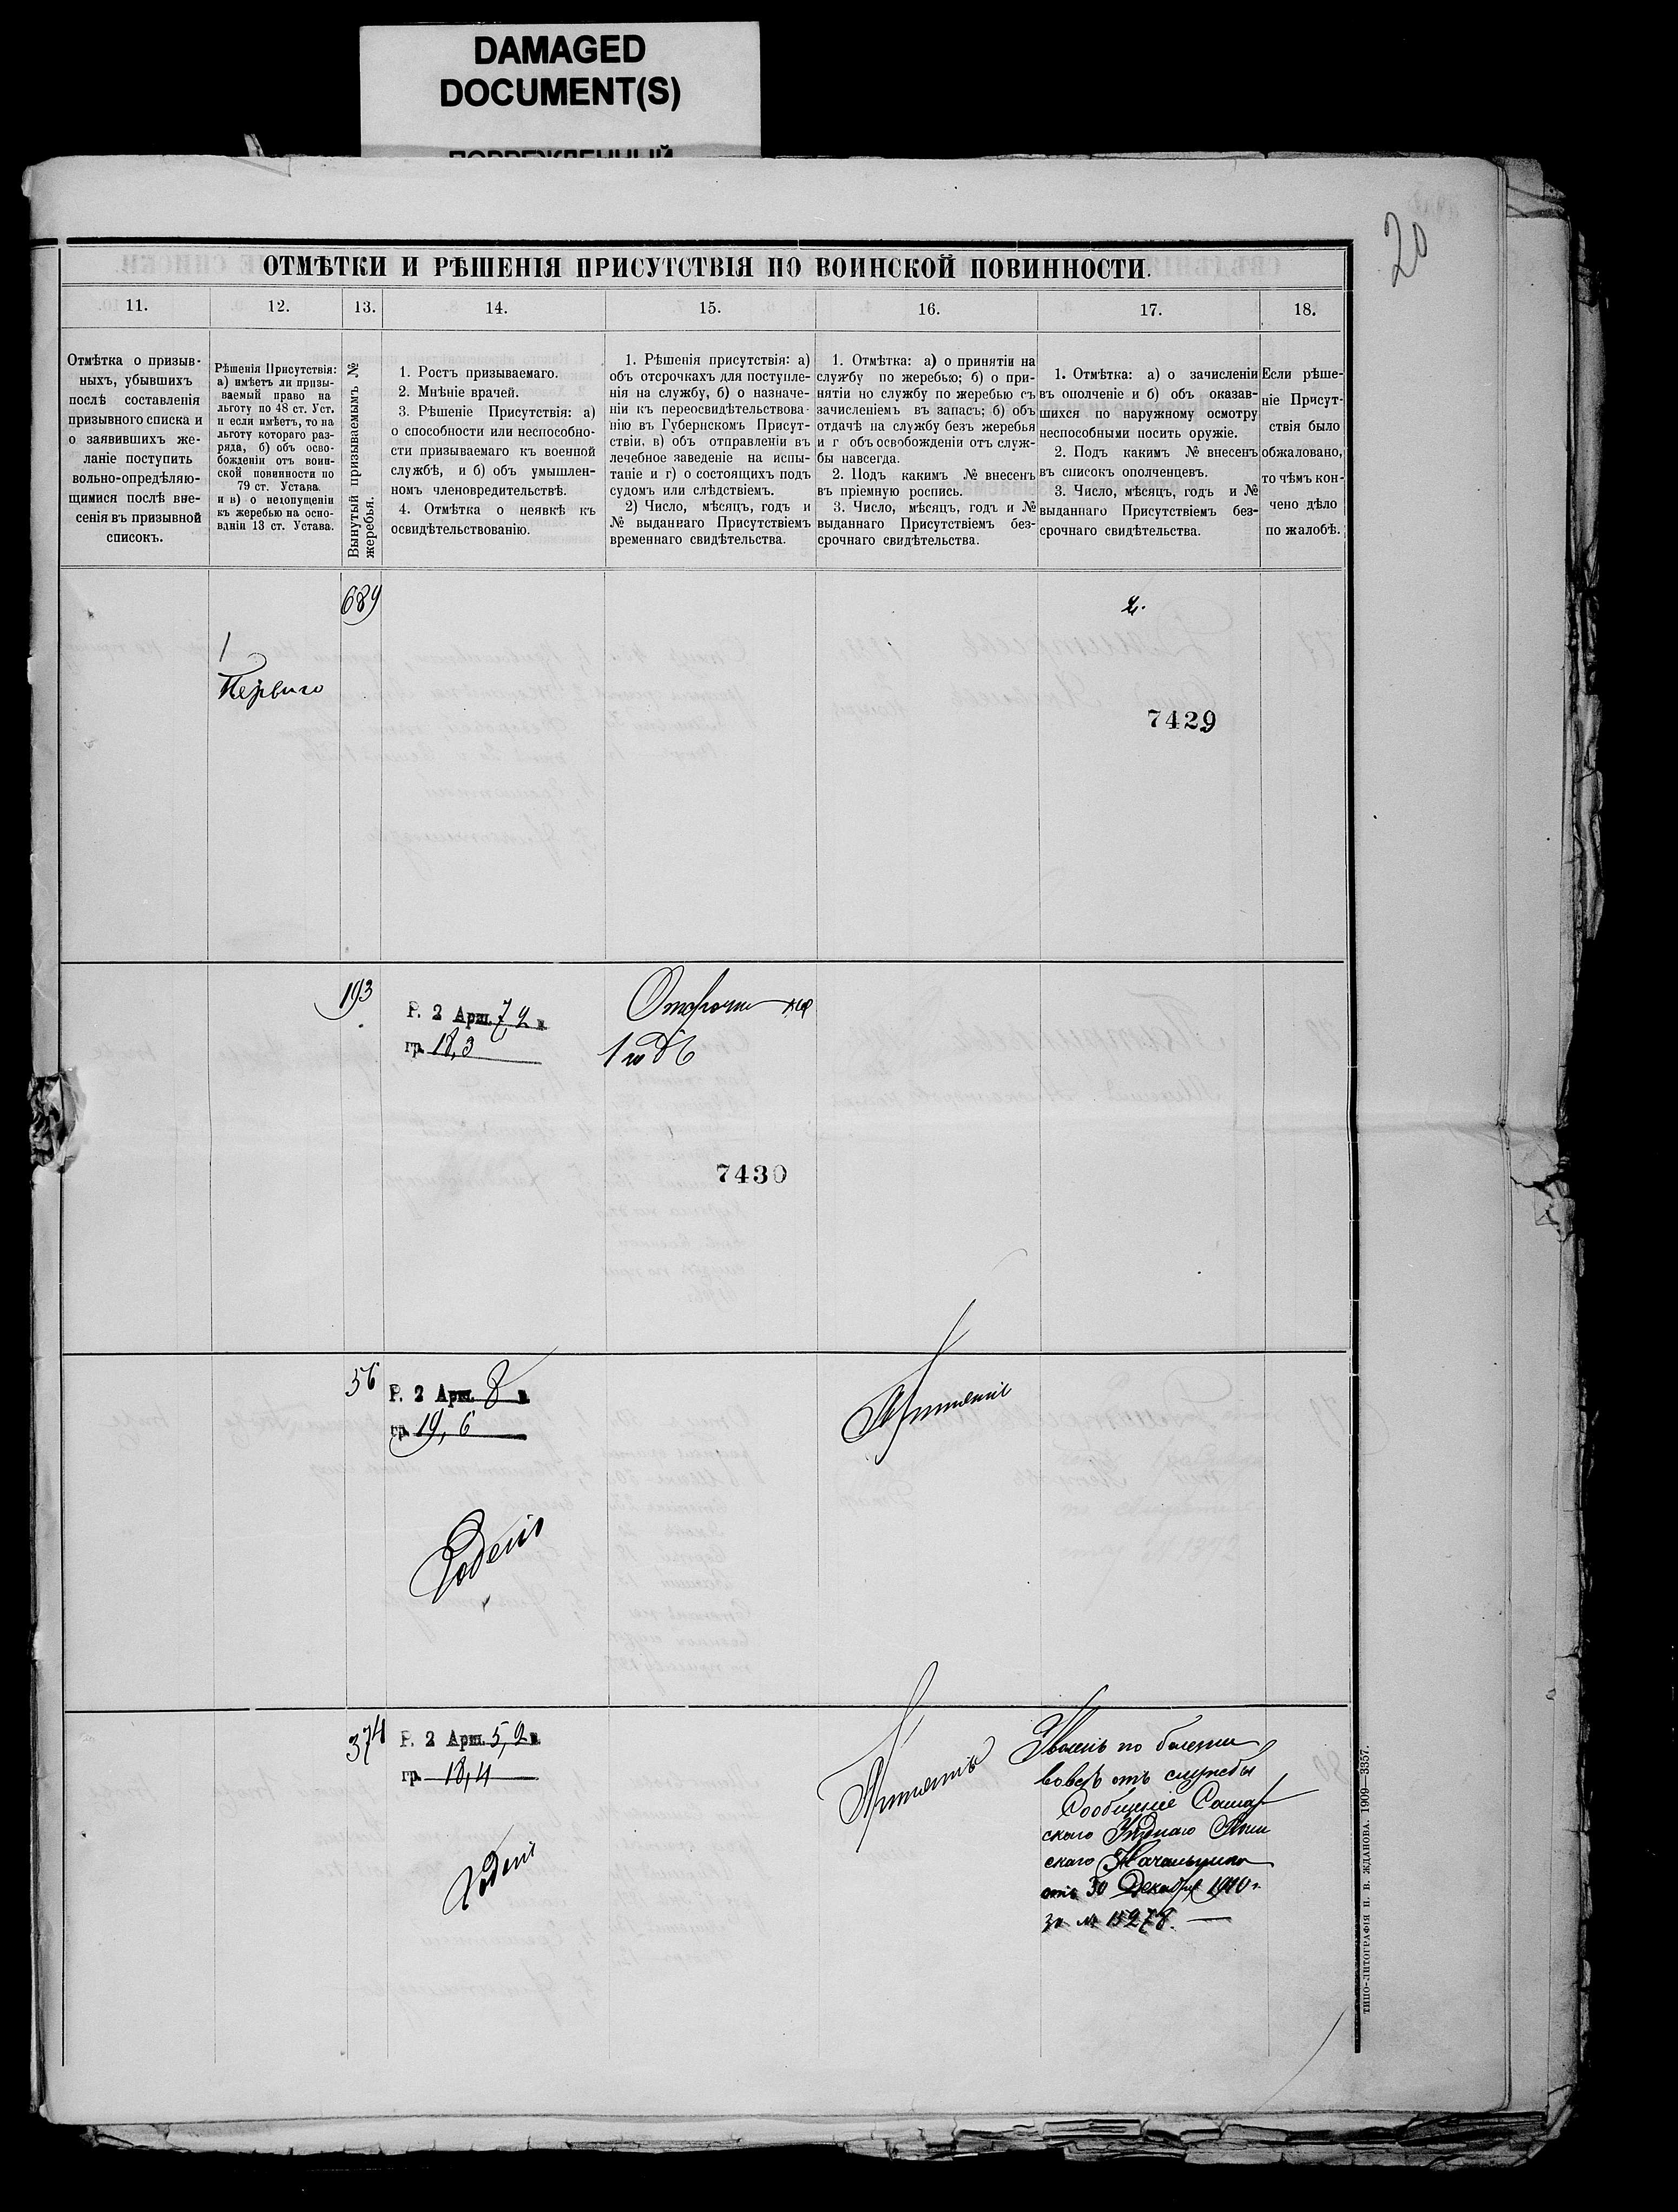 DAMAGED
DOCUMENT(S)
20
ОТМѢТКИ И РѢШЕНІЯ ПРИСУТСТВІЯ ПО ВОИНСКОЙ ПОВИННОСТИ.
11.
12.
13.
14.
15.
16.
17.
18.
Отмѣтка о призыв-
ныхъ, убывшихъ
послѣ составленія
призывного списка и
о заявившихъ же-
ланіе поступить
вольно-опредѣляю-
щимися послѣ вне-
сенія въ призывной
списокъ.
Рѣшенія Присутствія:
а) имѣетъ ли призы-
ваемый право на
льготу по 48 ст. Уст.
и если имѣетъ, то на
льготу котораго раз-
ряда, б) объ осво-
божденіи отъ воин-
ской повинности по
79 ст. Устава.
и в) о недопущеніи
къ жеребью на осно-
ваніи 13 ст. Устава.
Вынутый призываемымъ №
жеребья.
1. Ростъ призываемаго.
2. Мнѣніе врачей.
3. Рѣшеніе Присутствія: а)
о способности или неспособно-
сти призываемаго къ военной
службѣ, и б) объ умышлен-
номъ членовредительствѣ.
4. Отмѣтка о неявкѣ къ
освидѣтельствованію.
1. Рѣшенія присутствія: а)
объ отсрочкахъ для поступле-
нія на службу, б) о назначе-
ніи къ переосвидѣтельствова-
нію въ Губернскомъ Присут-
ствіи, в) объ отправленіи въ
лечебное заведеніе на испы-
таніе и г) о состоящихъ подъ
судомъ или слѣдствіемъ.
2) Число, мѣсяцъ, годъ и
№ выданнаго Присутствіемъ
временнаго свидѣтельства.
1. Отмѣтка: а) о принятіи на
службу по жеребью; б) о при-
нятіи но службу по жеребью съ
зачисленіемъ въ запасъ; б) объ
отдачѣ на службу безъ жеребья
и г объ освобожденіи отъ служ-
бы навсегда.
2. Подъ какимъ № внесенъ
въ пріемную роспись.
3. Число, мѣсяцъ, годъ и №
выданнаго Присутствіемъ без-
срочнаго свидѣтельства.
1. Отмѣтка: а) о зачисленіи
въ ополченіе и б) объ оказав-
шихся по наружному осмотру
неспособными носить оружіе.
2. Подъ какимъ № внесенъ
въ списокъ ополченцевъ.
3. Число, мѣсяцъ, годъ и №
выданнаго Присутствіемъ без-
срочнаго свидѣтельства.
Если рѣше-
ніе Присут-
ствія было
обжаловано,
то чѣмъ кон-
чено дѣло
по жалобѣ.
689
1
Перваго
7429
193
Р. 2 Арш. 7,2 в
гр. 18,3
Отсрочить на
1 годъ
7430
56
Р. 2 Арш. 8 в
гр. 19,6
Годенъ
Принятъ
374
Р. 2 Арш. 5,2 в
гр. 18,4
Годенъ
Принятъ
по болезни
вовсе отъ службы
Сообщеніе Самар
скаго Уѣзднаго Воин
скаго Начальника
отъ 30 Декабря 1910 г.
за № 15278.
ТИПО-ЛИТОГРАФІЯ Н. В. ЖДАНОВА. 1909—3357.